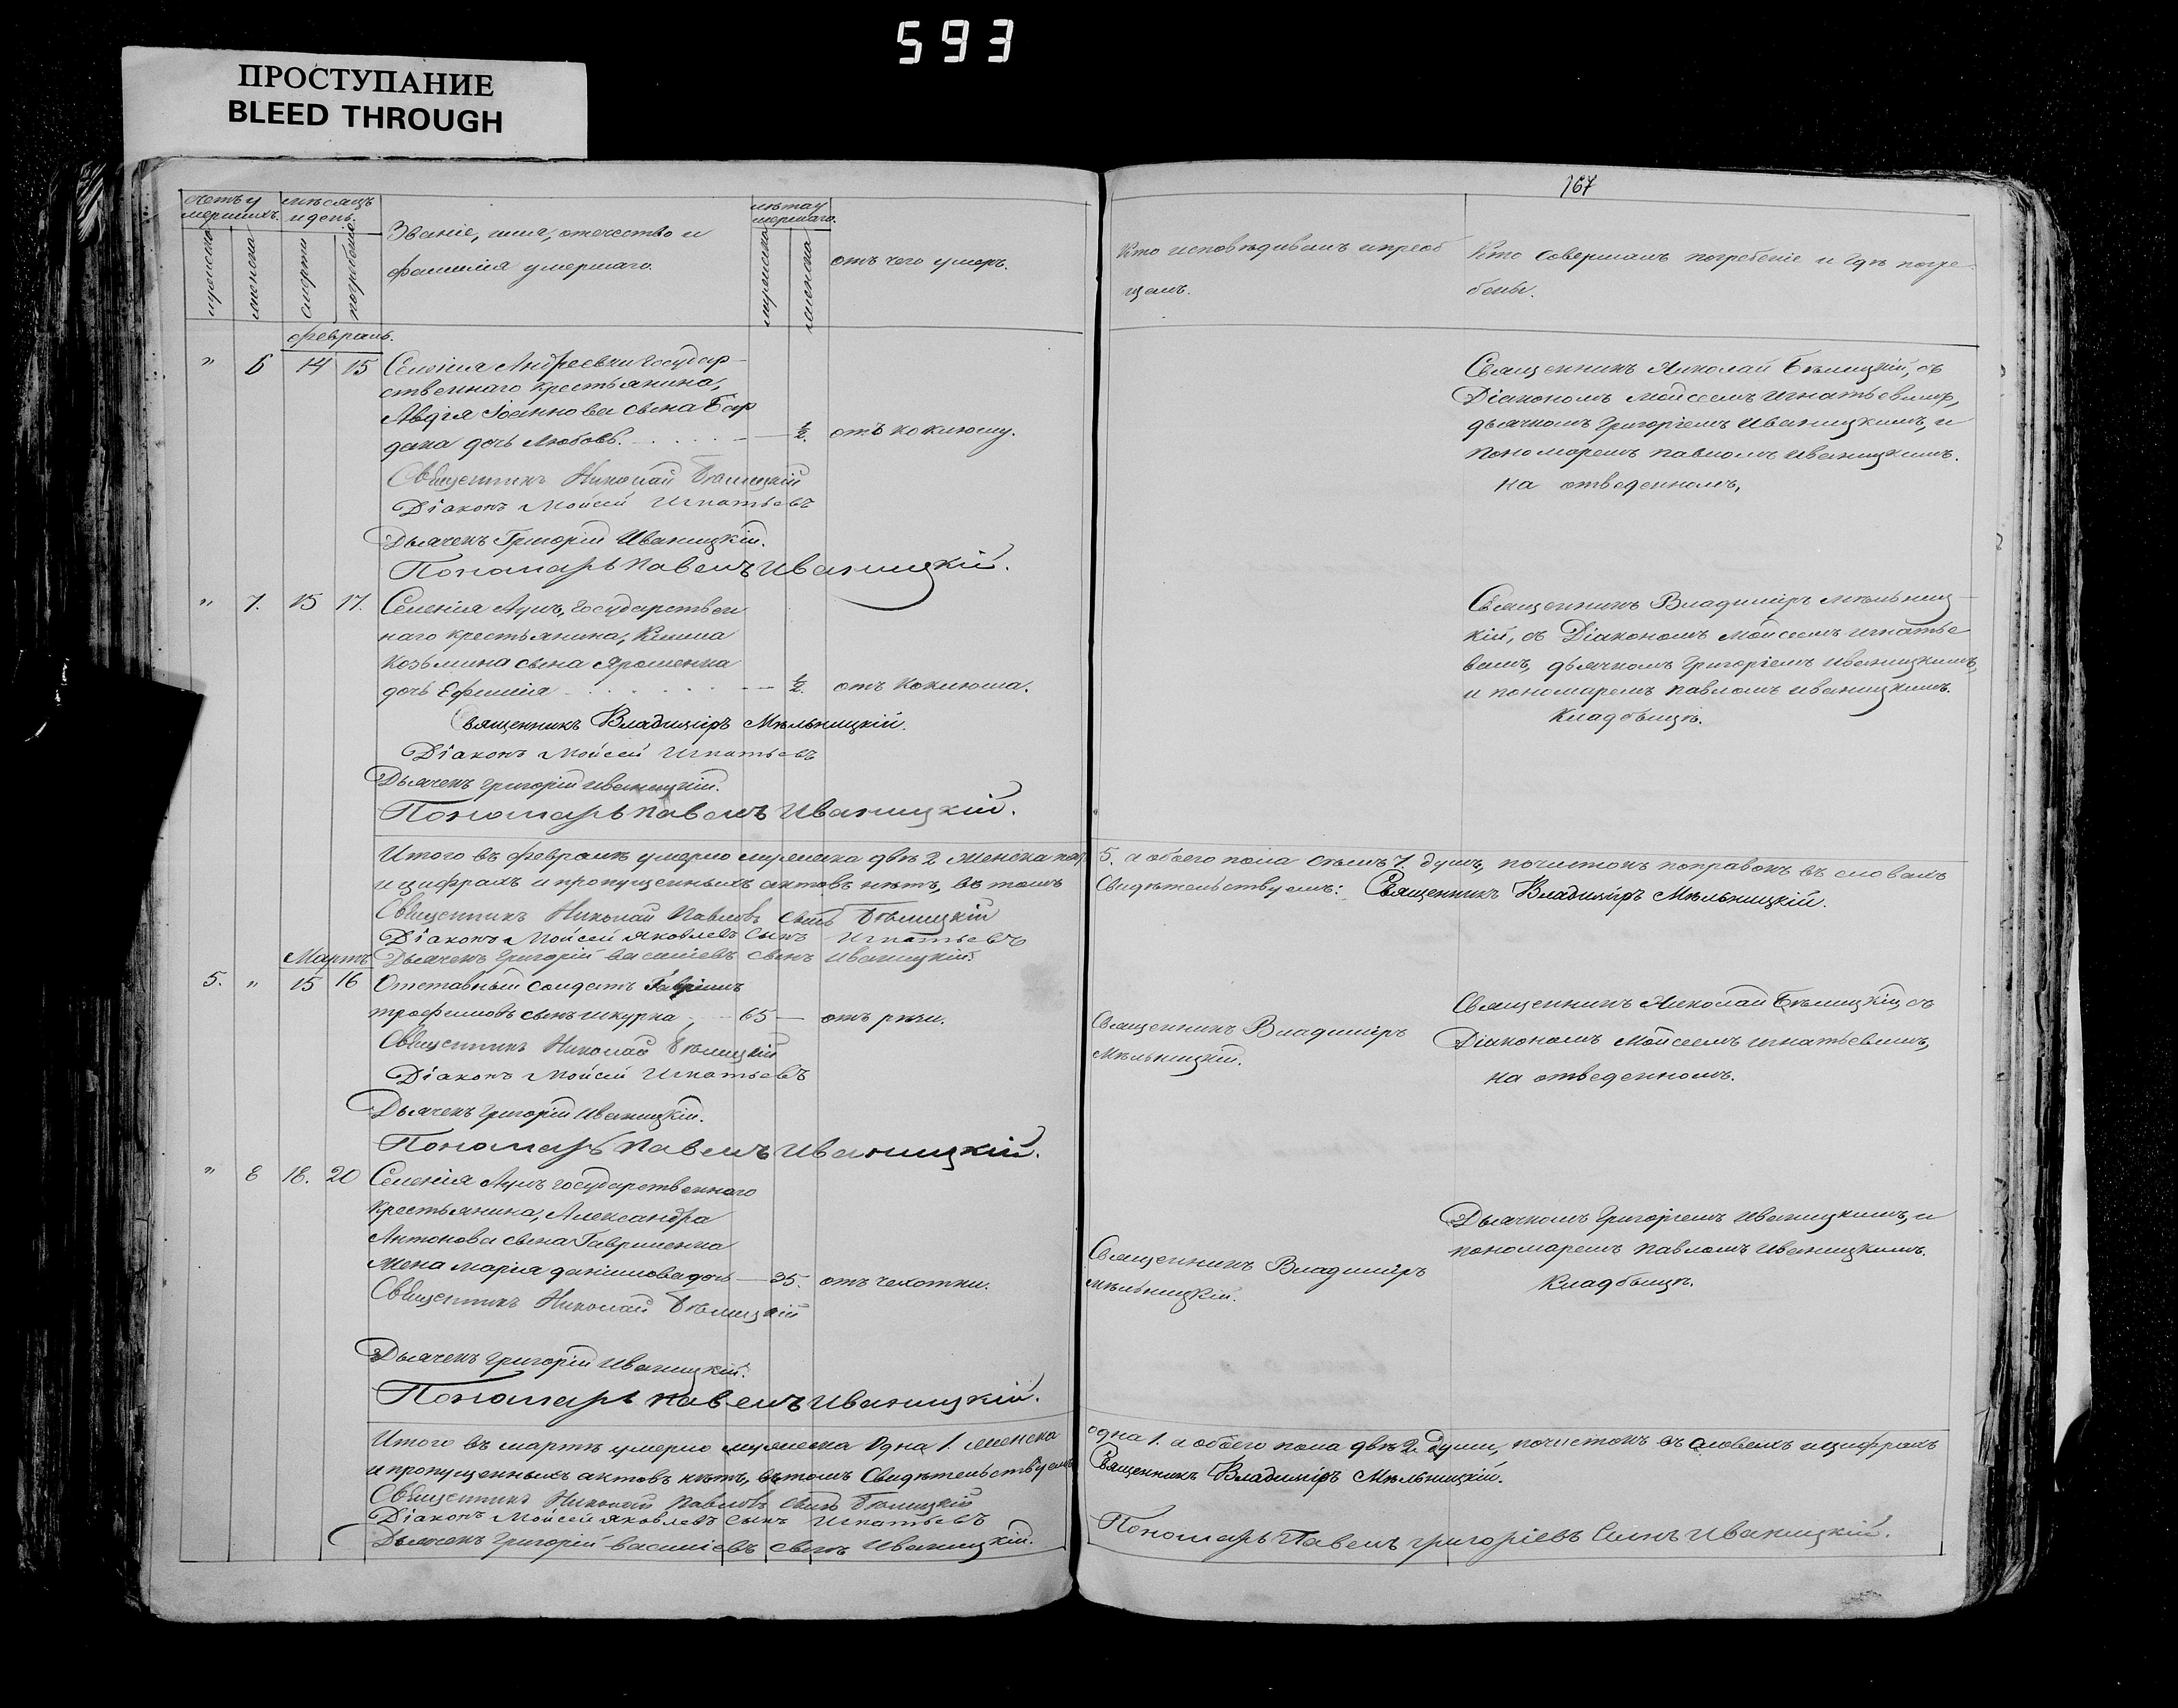 593
ПРОСТУПАНИЕ
BLEED THROUGH
167
счетъ умершихъ.
мѣсяцъ и день.
Званіе, имя, отечество и
фамилія умершаго.
лѣта умершаго.
отъ чего умеръ.
мужеска
женска
смерти
погребенія
мужеска
женска
Кто исповѣдывалъ и пріоб
щалъ.
Кто совершалъ погребеніе и гдѣ погре
бены.
февраль.
" 6 14 15 Селенія Андреевки Государ
ственнаго крестьянина,
Авдія Іоаннова сына
дака дочь Любовь. ½. отъ коклюшу.
Священникъ Николай Бѣлицкій
Діаконъ Мойсей Игнатьевъ
Дьячекъ Григорій Иваницкій.
Пономарь Павелъ Иваницкій.
Священникъ Николай Бѣлицкій, съ
Діакономъ Мойсеемъ Игнатьевымъ,
дьячкомъ Григоріемъ Иваницкимъ, и
пономаремъ Павломъ Иваницкимъ.
на отведенномъ,
" 7. 15 17. Селенія Ауль, Государствен
наго крестьянина,
Козьмина сына Ярошенка
дочь Ефимія ½. отъ коклюша.
Священникъ Владимиръ Мѣльницкій.
Діаконъ Мойсей Игнатьевъ
Дьячекъ Григорій Иваницкій.
Пономарь Павелъ Иваницкій.
Священникъ Владимиръ Мѣльниц
кій, съ Діакономъ Мойсеемъ Игнатье
вымъ, дьячкомъ Григоріемъ Иваницкимъ,
и пономаремъ Павломъ Иваницкимъ.
Кладбищѣ.
Итого въ февралѣ умерло мужеска двѣ 2 женска пять 5. а обоего пола семь 7. душъ, почистокъ поправокъ въ словахъ
и цифрахъ и пропущенныхъ актовъ нѣтъ, въ томъ Свидѣтельствуемъ: Священникъ Владимиръ Мѣльницкій.
Священникъ Николай Павловъ сынъ Бѣлицкій
Діаконъ Мойсей Яковлевъ сынъ Игнатьевъ
Дьячекъ Григорій Василіевъ сынъ Иваницкій.
Мартъ
5. " 15 16 Отставный солдатъ Гавріилъ
Трофимовъ сынъ Шкурка 65 отъ рѣчи.
Священникъ Николай Бѣлицкій
Діаконъ Мойсей Игнатьевъ
Дьячекъ Григорій Иваницкій.
Пономарь Павелъ Иваницкій.
Священникъ Владимиръ
Мѣльницкій.
Священникъ Николай Бѣлицкій, съ
Діакономъ Мойсеемъ Игнатьевымъ,
на отведенномъ.
" 8 18. 20 Селенія Ауль Государственнаго
крестьянина, Александра
Антонова сына Гавриленка
жена Марія Данилова дочь 35. отъ чехотки.
Священникъ Николай Бѣлицкій
Дьячекъ Григорій Иваницкій.
Пономарь Павелъ Иваницкій.
Священникъ Владимиръ
Мѣльницкій.
Дьячкомъ Григоріемъ Иваницкимъ, и
пономаремъ Павломъ Иваницкимъ.
Кладбищѣ.
Итого въ мартѣ умерло мужеска одна 1. женска одна 1. а обоего пола двѣ 2. души, почистокъ въ словахъ и цифрахъ
и пропущенныхъ актовъ нѣтъ, въ томъ Свидѣтельствуемъ Священникъ Владимиръ Мѣльницкій.
Священникъ Николай Павловъ сынъ Бѣлицкій
Діаконъ Мойсей Яковлевъ сынъ Игнатьевъ
Дьячекъ Григорій Василіевъ сынъ Иваницкій.
Пономарь Павелъ Григоріевъ Сынъ Иваницкій.